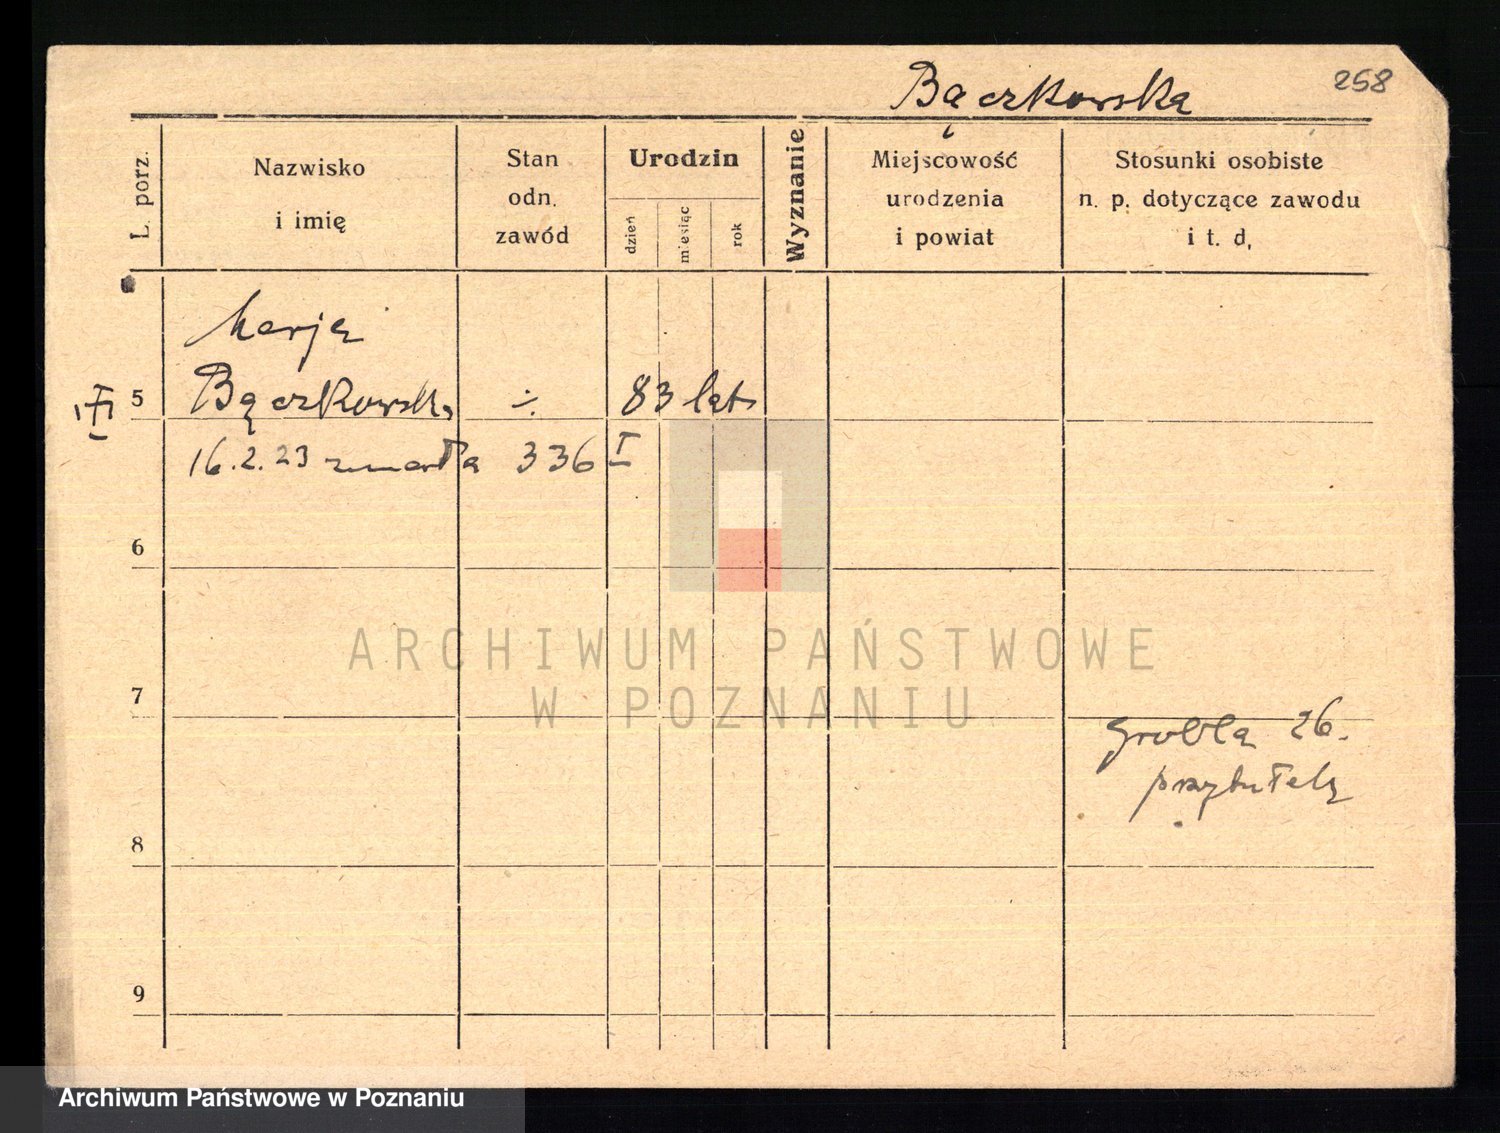 258
Bączkowska
L. porz.
Nazwisko
i imię
Stan
odn.
zawód
Urodzin
dzień
miesiąc
rok
Wyznanie
Miejscowość
urodzenia
i powiat
Stosunki osobiste
n. p. dotyczące zawodu
i t. d.
Marja
5 Bączkowska ÷ 83 lat
16.2.23 zmarła 336 I
6
ARCHIWUM PAŃSTWOWE
W POZNANIU
7
Grobla 26.
przytułek
8
9
Archiwum Państwowe w Poznaniu